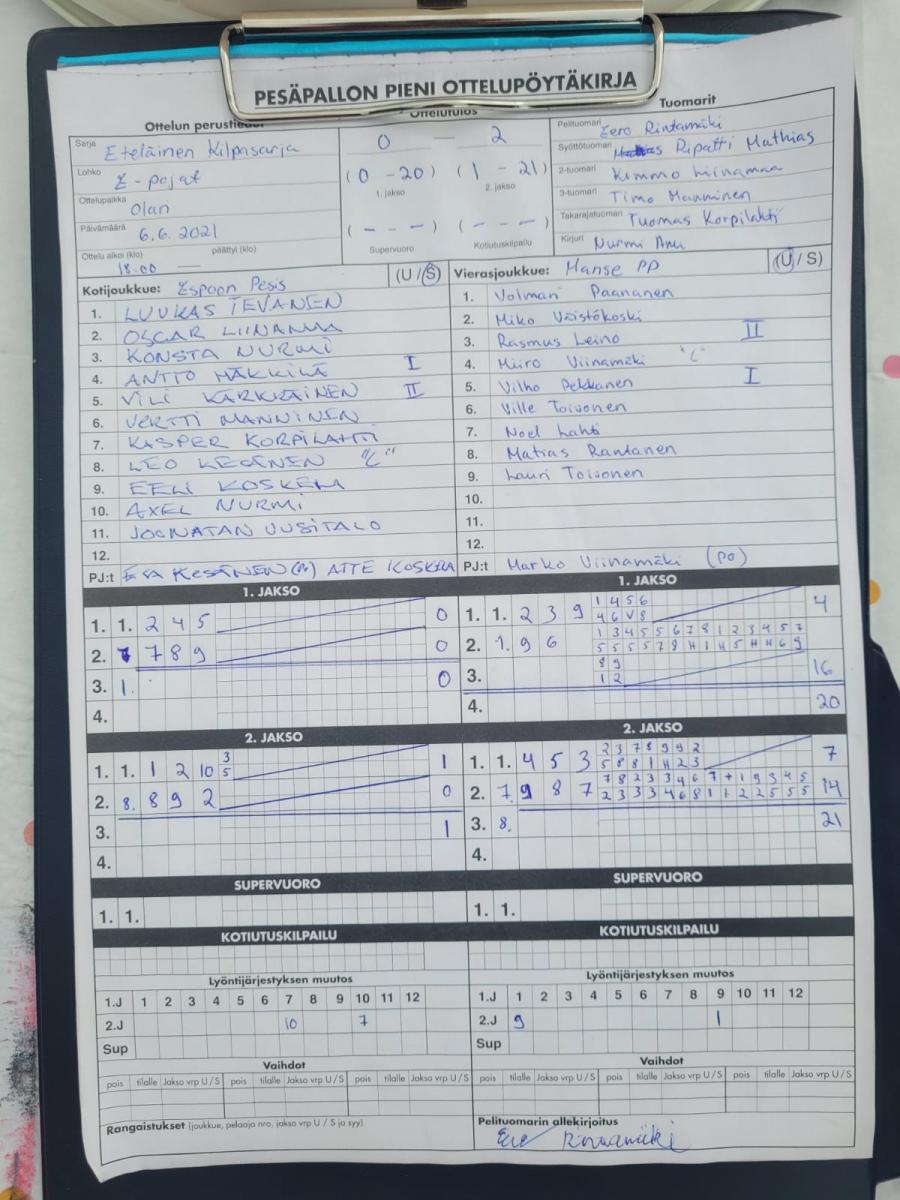 PESÄPALLON PIENI OTTELUPÖYTÄKIRJA
Ottelun perustiedot Ottelutulos Tuomarit
Sarja Eteläinen Kilpasarja
0 — 2
Pelituomari Eero Rintamäki
Syöttötuomari Ripatti Mathias
Lohko E-pojat
(0 - 20) (1 - 21)
1. jakso 2. jakso
2-tuomari Kimmo Liinamaa
Ottelupaikka Olari
3-tuomari Timo Manninen
Päivämäärä 6.6.2021
(- - -) (- - -)
Supervuoro Kotiutuskilpailu
Takarajatuomari Tuomas Korpilahti
Ottelu alkoi (klo) 18.00 päättyi (klo) —
Kirjuri Nurmi Anu
Kotijoukkue: Espoon Pesis (U / S)
1. LUUKAS TEVANEN
2. OSCAR LIINAMAA
3. KONSTA NURMI
4. ANTTO MÄKKILÄ I
5. VILI KÄRKKÄINEN II
6. VERTTI MANNINEN
7. KASPER KORPILAHTI
8. LEO KESÄNEN "C"
9. EELI KOSKELA
10. AXEL NURMI
11. JOONATAN UUSITALO
12.
PJ:t ESA KESÄNEN ATTE KOSKELA
Vierasjoukkue: Manse PP (U / S)
1. Volmari Paananen
2. Miko Väistökoski
3. Rasmus Leino II
4. Miiro Viinamäki "C"
5. Vilho Pekkanen I
6. Ville Toivonen
7. Noel Lahti
8. Matias Rantanen
9. Lauri Toivonen
10.
11.
12.
PJ:t Marko Viinamäki (PO)
1. JAKSO
1. 1. 2 4 5 0
2. 7 8 9 0
3. 1. 0
4.
1. JAKSO
1. 1. 2 3 9 1 4 5 6 4
4 6 V 8
2. 1. 9 6 1 3 4 5 5 6 7 8 1 2 3 4 5 7
3. 8 9 16
1 2
4. 20
2. JAKSO
1. 1. 1 2 10 3 1
5
2. 8. 8 9 2 0
3. 1
4.
2. JAKSO
1. 1. 4 5 3 2 3 7 8 9 9 2 7
2. 7. 9 8 7 14
2 3 3 3 4 6 8 1 1 2 2 5 5 5
3. 8. 21
4.
SUPERVUORO
1. 1.
SUPERVUORO
1. 1.
KOTIUTUSKILPAILU
KOTIUTUSKILPAILU
Lyöntijärjestyksen muutos
1.J 1 2 3 4 5 6 7 8 9 10 11 12
2.J 10 7
Sup
Lyöntijärjestyksen muutos
1.J 1 2 3 4 5 6 7 8 9 10 11 12
2.J 9 1
Sup
Vaihdot
pois tilalle Jakso vrp U / S pois tilalle Jakso vrp U / S pois tilalle Jakso vrp U / S
Vaihdot
pois tilalle Jakso vrp U / S pois tilalle Jakso vrp U / S pois tilalle Jakso vrp U / S
Rangaistukset (joukkue, pelaaja nro, jakso vrp U / S ja syy)
Pelituomarin allekirjoitus
Eero Rintamäki